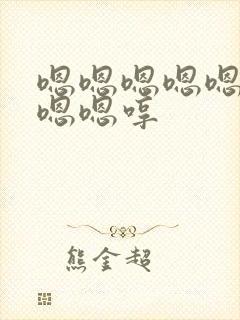 嗯嗯嗯嗯嗯
嗯嗯哼
熊金超